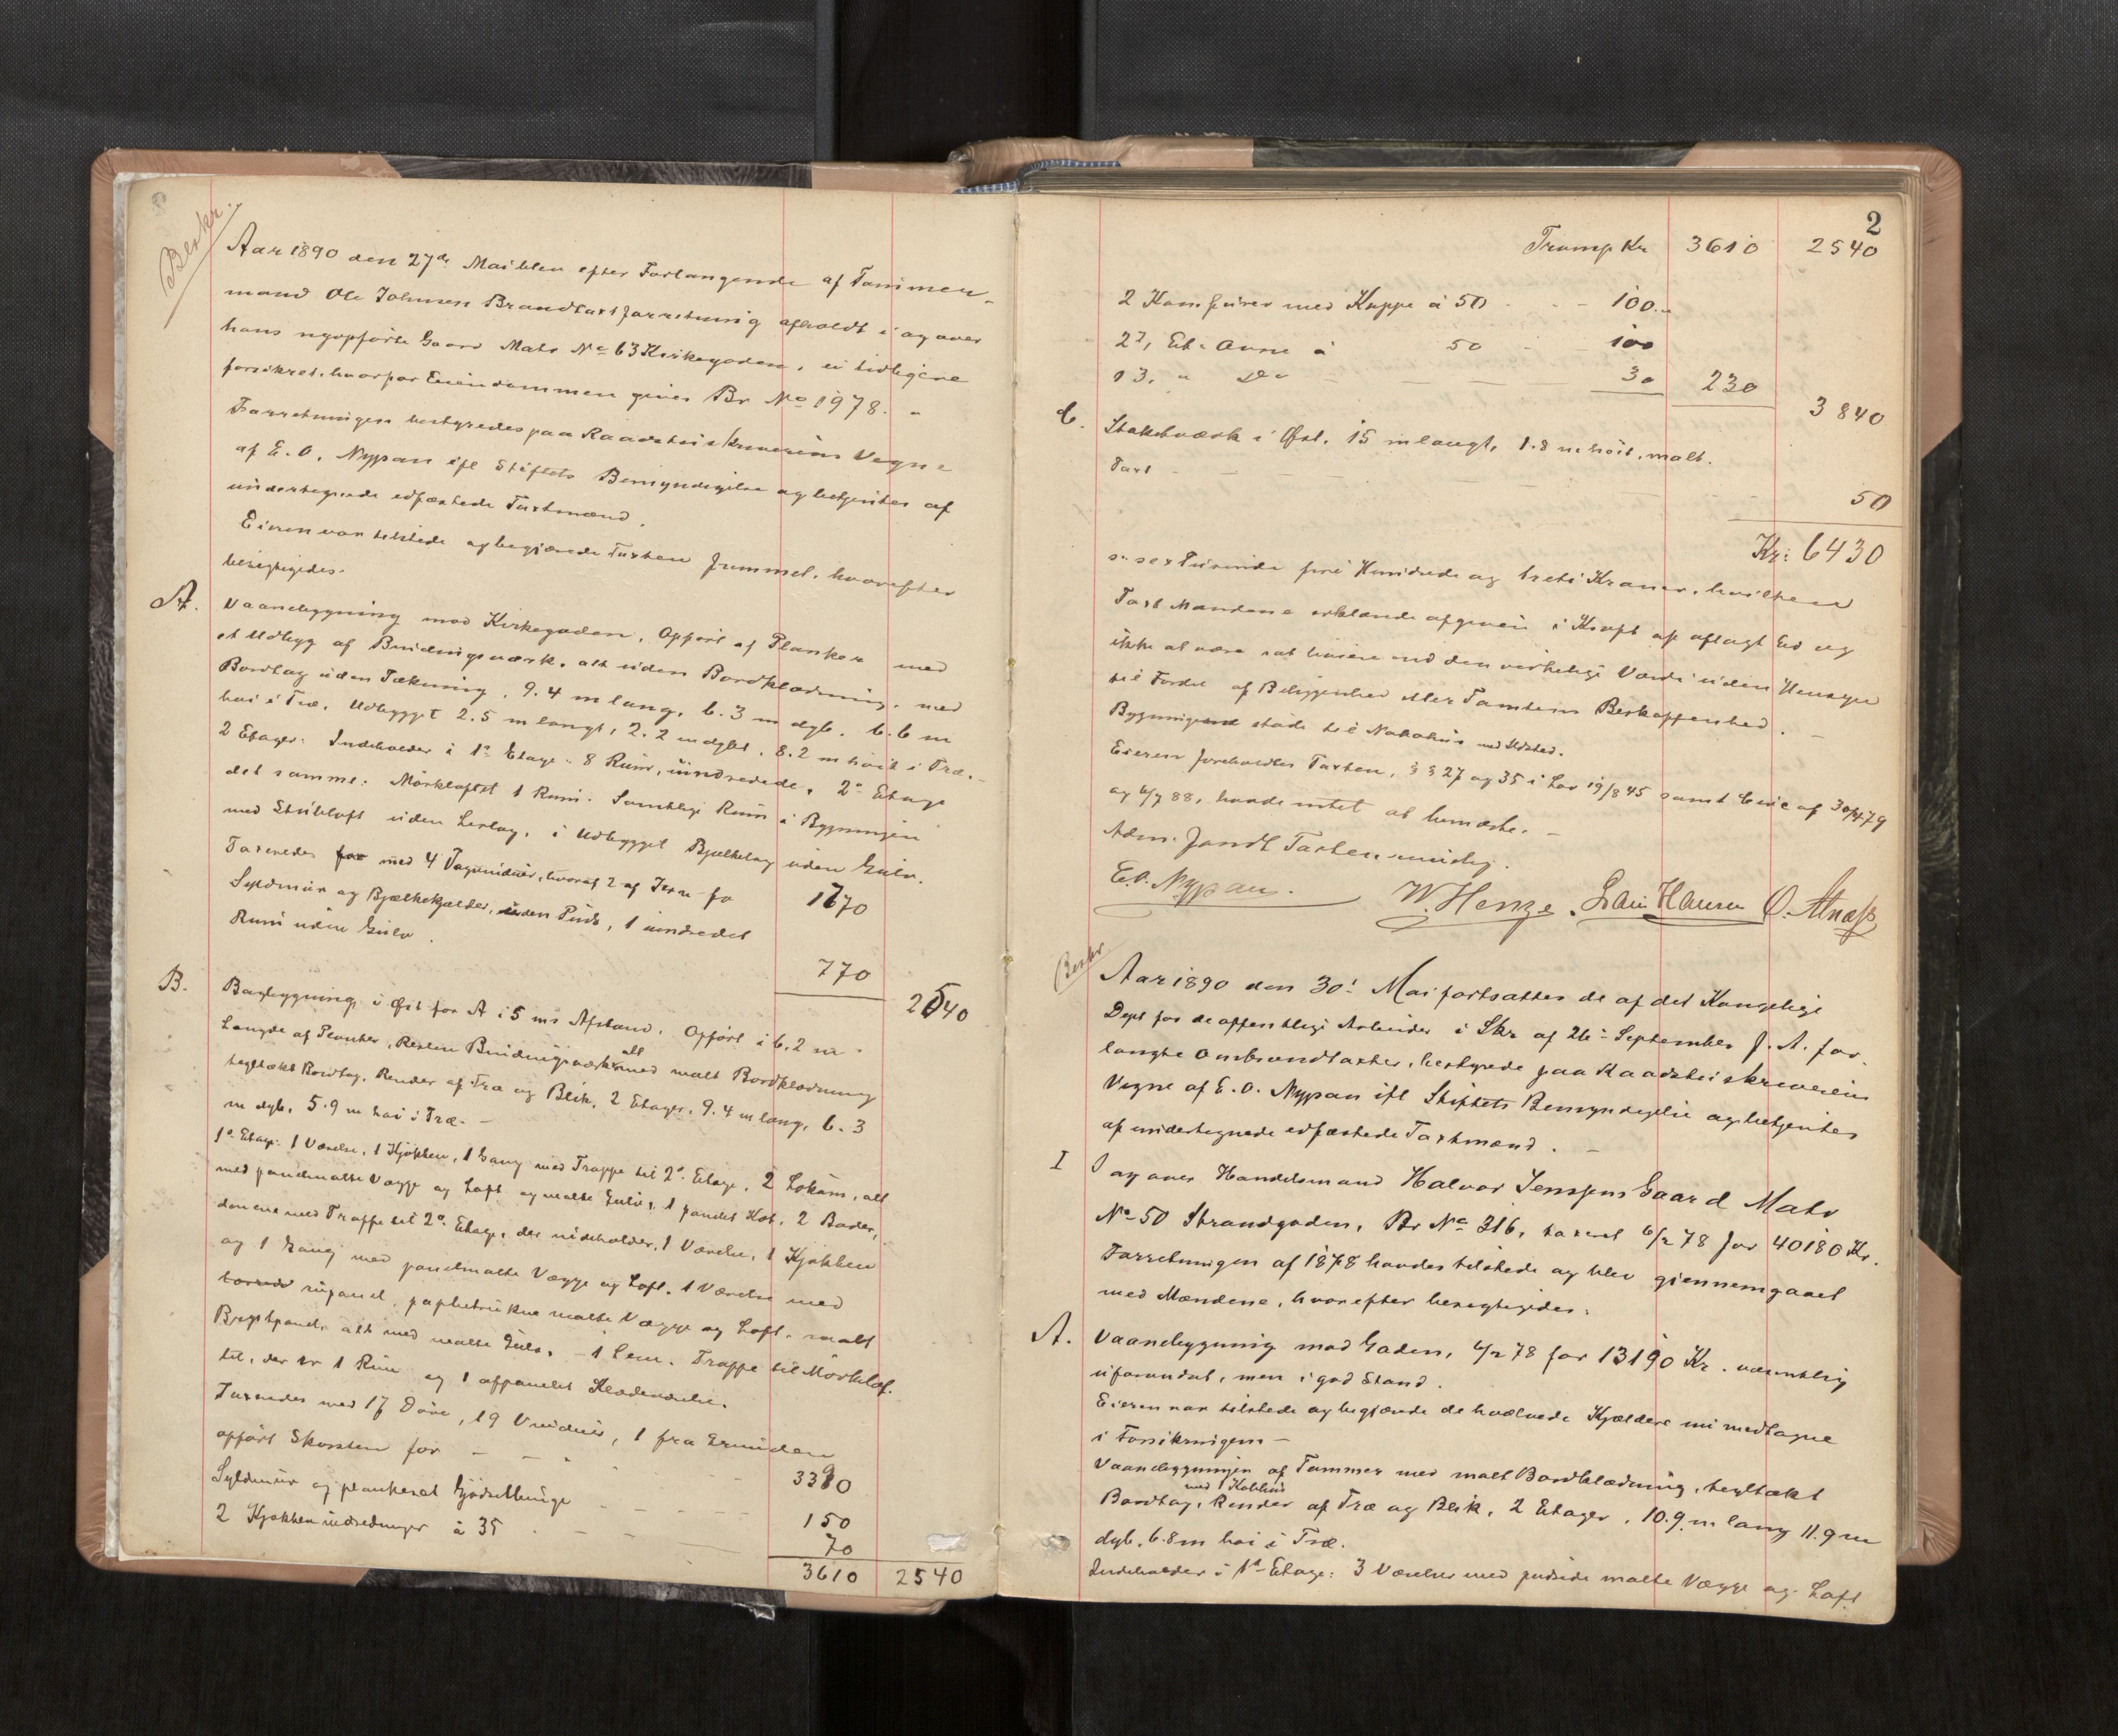 Beskr.
Aar 1890 den 27de Mai blev efter Forlangende af Tømmer-
mand Ole Johnsen Brandtaxtforretning afholdt i og over
hans nyopførte Gaard Matr No 63 Kirkegaden, ei tidligere
forsikret, hvorfor Eiendommen gives Br No 1978. "
Forretningen bestyredes paa Raadstuskriverens Vegne
af E. O. Nypan ifl Stiftets Bemyndigelse og betjentes af
undertegnede edfæstede Taxtmænd.
Eieren var tilstede og begjærede Taxten fremmet, hvorefter
besigtigedes.
A. Vaanebygning mod Kirkegaden. Opført af Planker med
et Udbyg af Bindingsværk, alt uden Bordklædning, med
Bordtag uden Tækning, 9.4 m lang, 6.3 m dyb, 6.6 m
høi i Træ. Udbygget 2.5 m langt, 2.2 m dybt, 8.2 m høit i Træ.-
2 Etager: Indeholder i 1ste Etage: 8 Rum, uindredede, 2den Etage
det samme: Mørkloftet 1 Rum. Samtlige Rum i Bygningen
med Stubloft uden Lerlag, i Udbygget Bjælkelag uden Gulv.
Taxeredes for med 4 Fagvinduer, hvoraf 2 af Jern fo 1770
Syldmur og Bjælkekjælder, uden Puds, 1 uindredet
Rum uden Gulv. 770 2540
B. Bagbygning i Øst for A i 5 ms Afstand. Opført i 6.2 m
Længde af Planker, Resten Bindingsværk alt med malt Bordklædning
tegltækt Bordtag, Render af Træ og Blik, 2 Etager, 9.4 m lang, 6.3
m dyb, 5.9 m høi i Træ. -
1ste Etage: 1 Værelse, 1 Kjøkken, 1 Gang med Trappe til 2den Etage, 2 Lokum, alt
med panelmalte Vægge og Loft og malte Gulv, 1 panelt Kot, 2 Boder,
den ene med Trappe til 2den Etage, der indeholder, 1 Værelse, 1 Kjøkken
og 1 Gang med panelmalte Vægge og Loft. 1 Værelse med
rupanel, papbetrukne malte Vægge og Loft, malt
Brystpanel, alt med malte Gulv, - 1 Lem. Trappe til Mørklof-
tet, der er 1 Rum og 1 afpanelet Klædeværelse.
Taxeredes med 17 Døre, 19 Vinduer, 1 fra Grunden
opført Skorsten for - - - - 3390
Syldmur og plankesat Gjødselbinge - - - - 150
2 Kjøkkenindredninger à 35 - - - 70
3610 2540
2
Transp Kr 3610 2540
2 Komfurer med Kappe à 50 - - 100. "
2 2, Et. Ovne à 50 - - 100
1 3, " Do - - - 30 230 3840
C. Stakitværk i Øst, 15 m langt, 1.8 m høit, malt.
Taxt - - - - 50
Kr: 6430
s. sex Tusinde fire Hundrede og treti Kroner, hvilken
Taxt Mændene erklærede afgiven i Kraft af aflagt Ed og
ikke at være sat høiere end den virkelige Værdi uden Hensyn
til Fordel af Beliggenhed eller Tomtens Beskaffenhed. -
Bygningerne støde til Nabohus med Ildsted.
Eieren foreholdtes Taxten, §§ 27 og 35 i Lov 19/8 45 samt Circ af 30/4 79
og 6/7 88, havde intet at bemærke. -
Adm. fandt Taxten rimelig.
E. O. Nypan. W. Henze. Lau Hansen O. Alnæss
Beskr
Aar 1890 den 30te Mai fortsattes de af det Kongelige
Dept for de offentlige Arbeider i Skr af 26de September f. A. for-
langte Ombrandtaxter, bestyrede paa Raadstuskriverens
Vegne af E. O. Nypan ifl Stiftets Bemyndigelse og betjentes
af undertegnede edfæstede Taxtmænd. -
I I og over Handelsmand Halvor Jenssens Gaard Matr
No 50 Strandgaden, Br No 316, taxeret 6/2 78 for 40180 Kr.
Forretningen af 1878 havdes tilstede og blev gjennemgaaet
med Mændene, hvorefter besigtigedes:
A. Vaanebygning mod Gaden, 6/2 78 for 13190 Kr. væsentlig
uforandret, men i god Stand.
Eieren var tilstede og begjærede de hvælvede Kjældere nu medtagne
i Forsikringen -
Vaanebygningen af Tømmer med malt Bordklædning, tegltækt
Bordtag, med 1 Kobbhus Render af Træ og Blik, 2 Etager, 10.9 m lang 11.9 m
dyb, 6.8 m høi i Træ.
Indeholder i 1ste Etage: 3 Værelser med pudsede malte Vægge og Loft